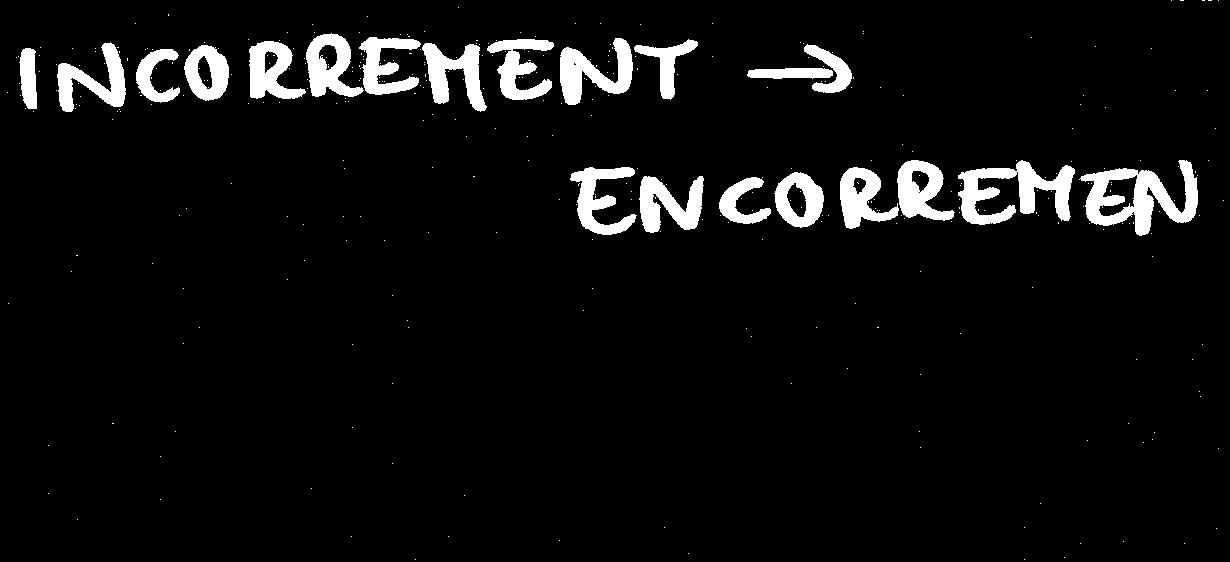 INCORREMENT →
ENCORREMEN